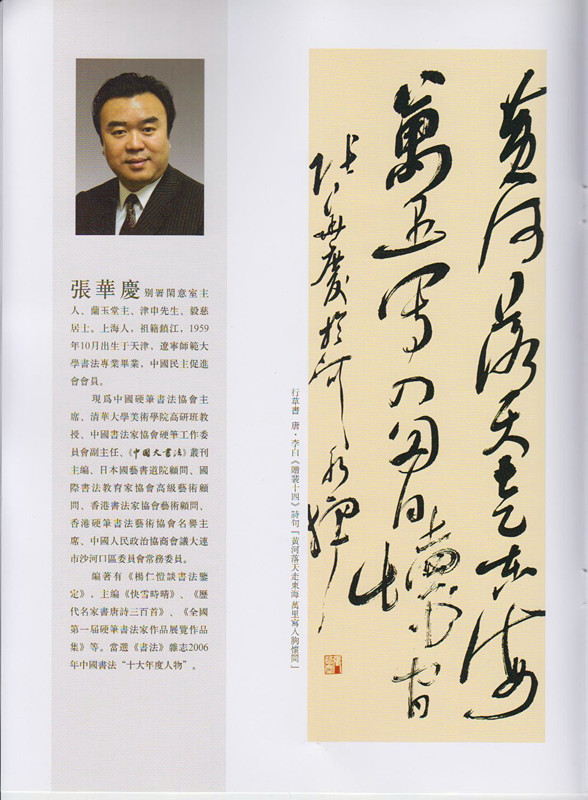 張華慶 别署閑意室主
人、蘭玉堂主、津申先生、毅慈
居士。上海人，祖籍鎮江，1959
年10月出生于天津，遼寧師範大
學書法專業畢業，中國民主促進
會會員。
現爲中國硬筆書法協會主
席、清華大學美術學院高研班教
授、中國書法家協會硬筆工作委
員會副主任、《中國大書法》叢刊
主編、日本國藝書道院顧問、國
際書法教育家協會高級藝術顧
問、香港書法家協會藝術顧問、
香港硬筆書法藝術協會名譽主
席、中國人民政治協商會議大連
市沙河口區委員會常務委員。
編著有《楊仁愷談書法鑒
定》，主編《快雪時晴》、《歷
代名家書唐詩三百首》、《全國
第一屆硬筆書法家作品展覽作品
集》等。當選《書法》雜志2006
年中國書法“十大年度人物”。
行草書 唐·李白《贈裴十四》詩句「黄河落天走東海 萬里寫入胸懷間」
黄河落天走東海
萬里寫入胸
懷間
張華慶於河